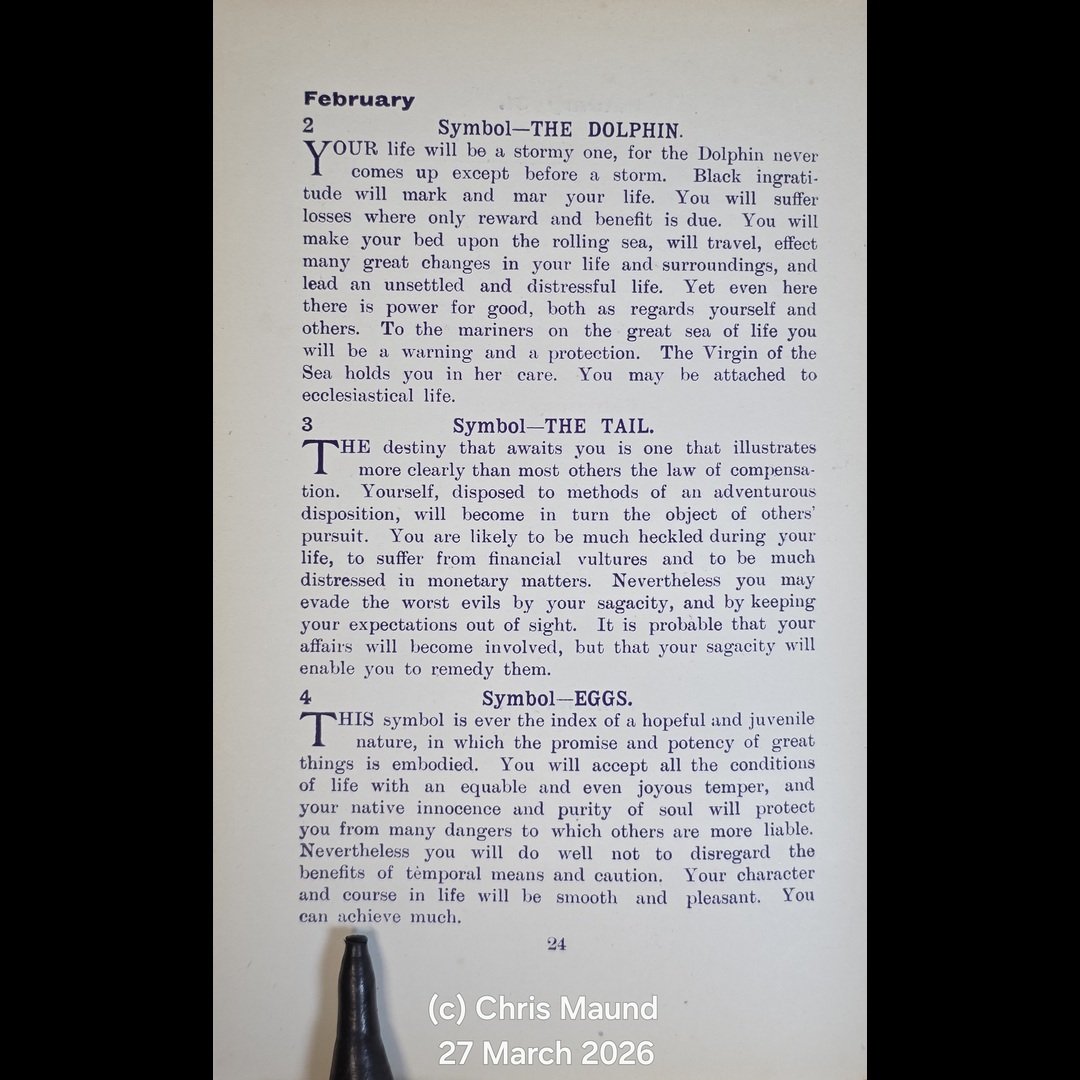 February
2 Symbol—THE DOLPHIN.
YOUR life will be a stormy one, for the Dolphin never
comes up except before a storm. Black ingrati-
tude will mark and mar your life. You will suffer
losses where only reward and benefit is due. You will
make your bed upon the rolling sea, will travel, effect
many great changes in your life and surroundings, and
lead an unsettled and distressful life. Yet even here
there is power for good, both as regards yourself and
others. To the mariners on the great sea of life you
will be a warning and a protection. The Virgin of the
Sea holds you in her care. You may be attached to
ecclesiastical life.
3 Symbol—THE TAIL.
THE destiny that awaits you is one that illustrates
more clearly than most others the law of compensa-
tion. Yourself, disposed to methods of an adventurous
disposition, will become in turn the object of others'
pursuit. You are likely to be much heckled during your
life, to suffer from financial vultures and to be much
distressed in monetary matters. Nevertheless you may
evade the worst evils by your sagacity, and by keeping
your expectations out of sight. It is probable that your
affairs will become involved, but that your sagacity will
enable you to remedy them.
4 Symbol—EGGS.
THIS symbol is ever the index of a hopeful and juvenile
nature, in which the promise and potency of great
things is embodied. You will accept all the conditions
of life with an equable and even joyous temper, and
your native innocence and purity of soul will protect
you from many dangers to which others are more liable.
Nevertheless you will do well not to disregard the
benefits of temporal means and caution. Your character
and course in life will be smooth and pleasant. You
can achieve much.
24
(c) Chris Maund
27 March 2026